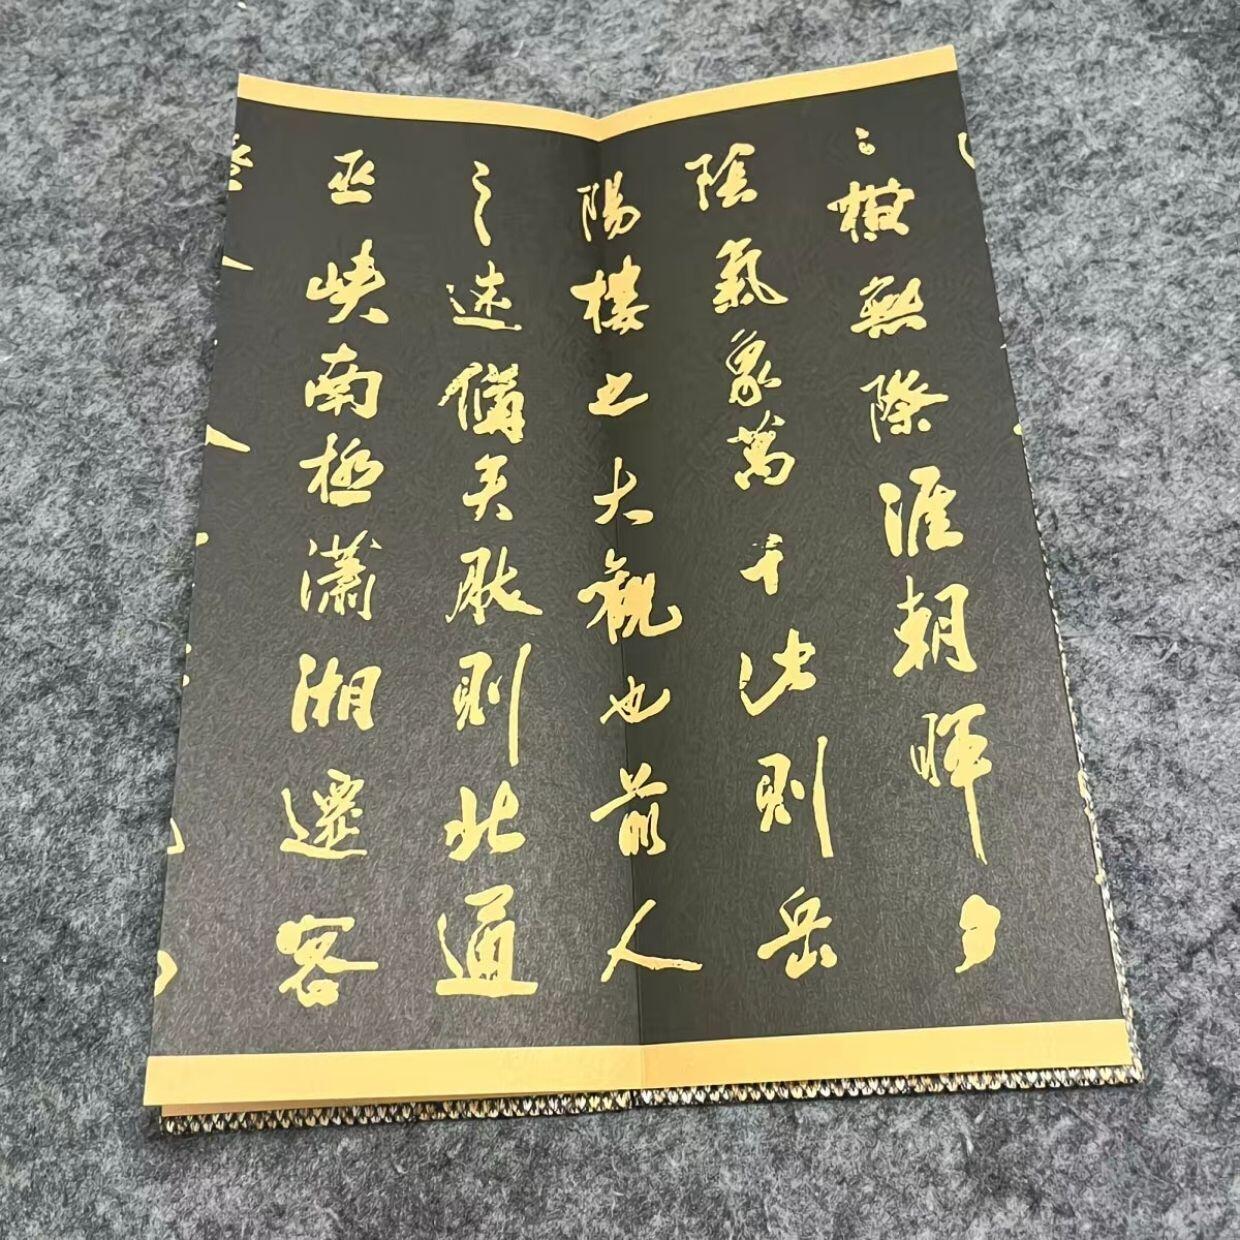 〻橫無際涯朝暉夕
陰氣象萬千此則岳
陽樓之大觀也前人
之述備矣然則北通
巫峽南極瀟湘遷客